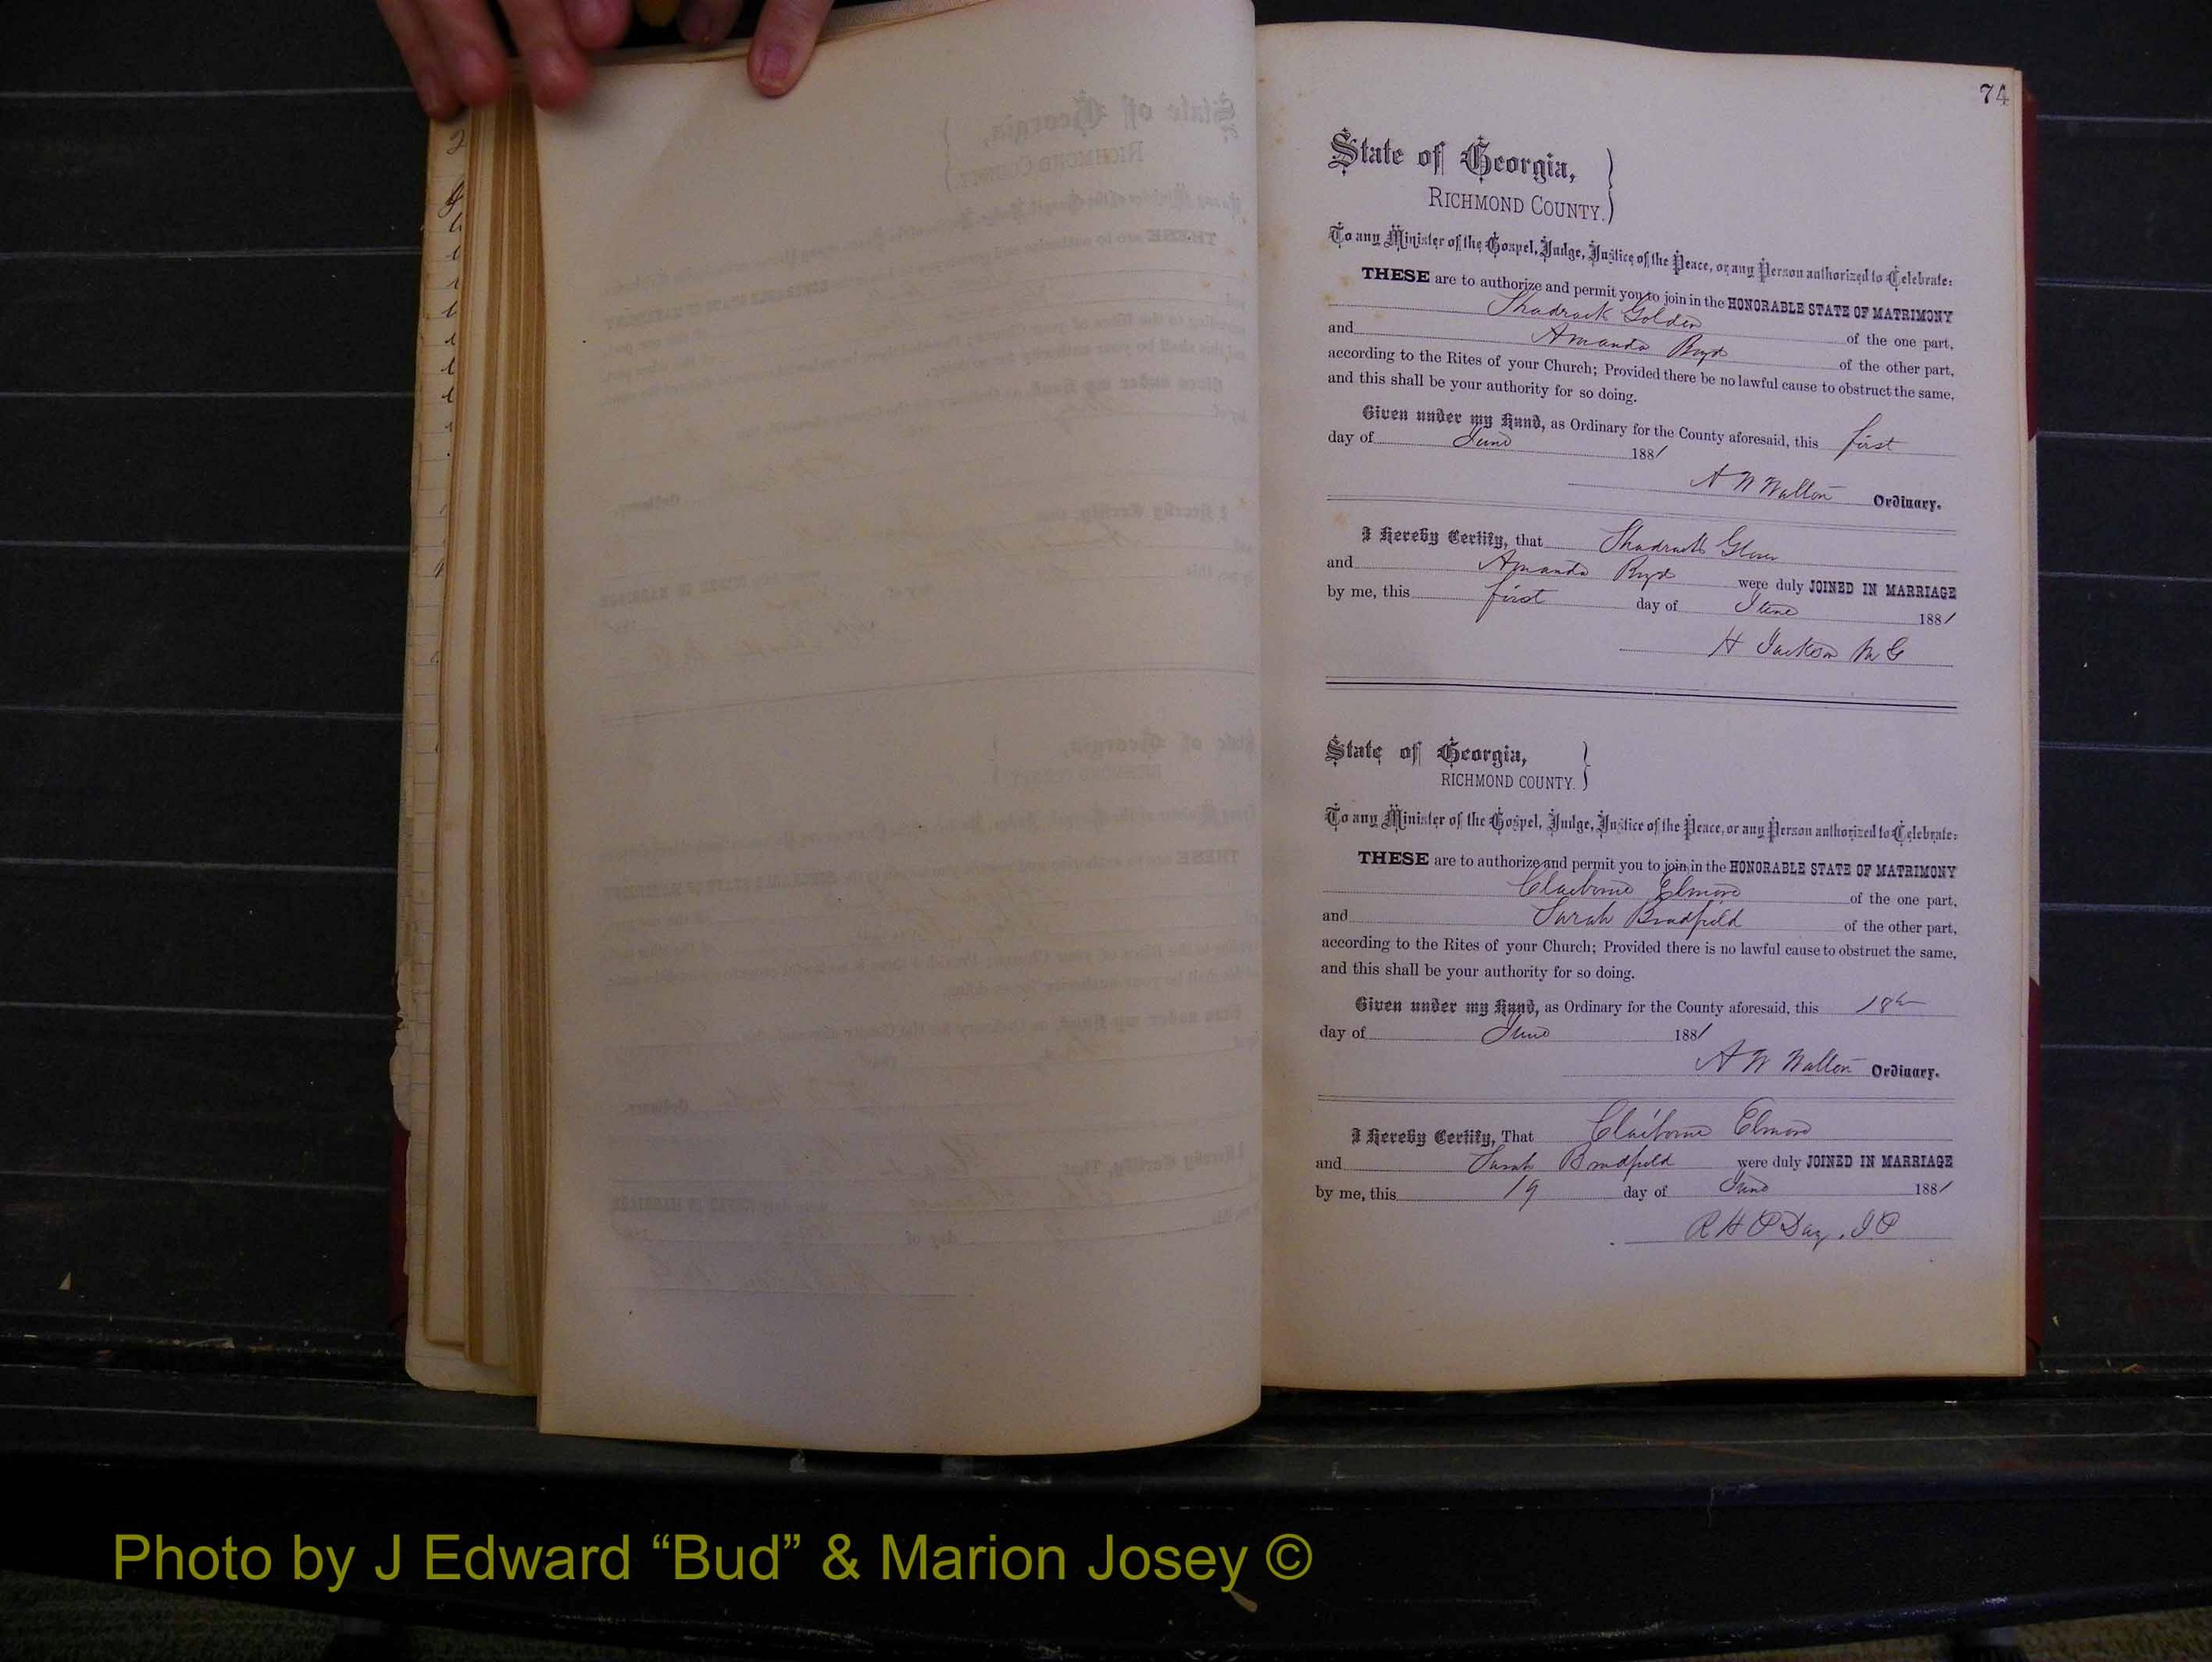 74
State of Georgia,
RICHMOND COUNTY.
To any Minister of the Gospel, Judge, Justice of the Peace, or any Person authorized to Celebrate:
THESE are to authorize and permit you to join in the HONORABLE STATE OF MATRIMONY
Shadrack Golden of the one part,
and Amanda Byd of the other part,
according to the Rites of your Church; Provided there be no lawful cause to obstruct the same,
and this shall be your authority for so doing.
Given under my Hand, as Ordinary for the County aforesaid, this first
day of June 1881
A W Walton Ordinary.
I Hereby Certify, that Shadrack
and Amanda Byd were duly JOINED IN MARRIAGE
by me, this first day of June 1881
H Jackson M G
State of Georgia,
RICHMOND COUNTY.
To any Minister of the Gospel, Judge, Justice of the Peace, or any Person authorized to Celebrate:
THESE are to authorize and permit you to join in the HONORABLE STATE OF MATRIMONY
Claiborne Elmore of the one part,
and Sarah Bradfield of the other part,
according to the Rites of your Church; Provided there is no lawful cause to obstruct the same,
and this shall be your authority for so doing.
Given under my Hand, as Ordinary for the County aforesaid, this 18th
day of June 1881
A W Walton Ordinary.
I Hereby Certify, That Claiborne Elmore
and Sarah Bradfield were duly JOINED IN MARRIAGE
by me, this 19 day of June 1881
R H P Day, J P
Photo by J Edward “Bud” & Marion Josey ©